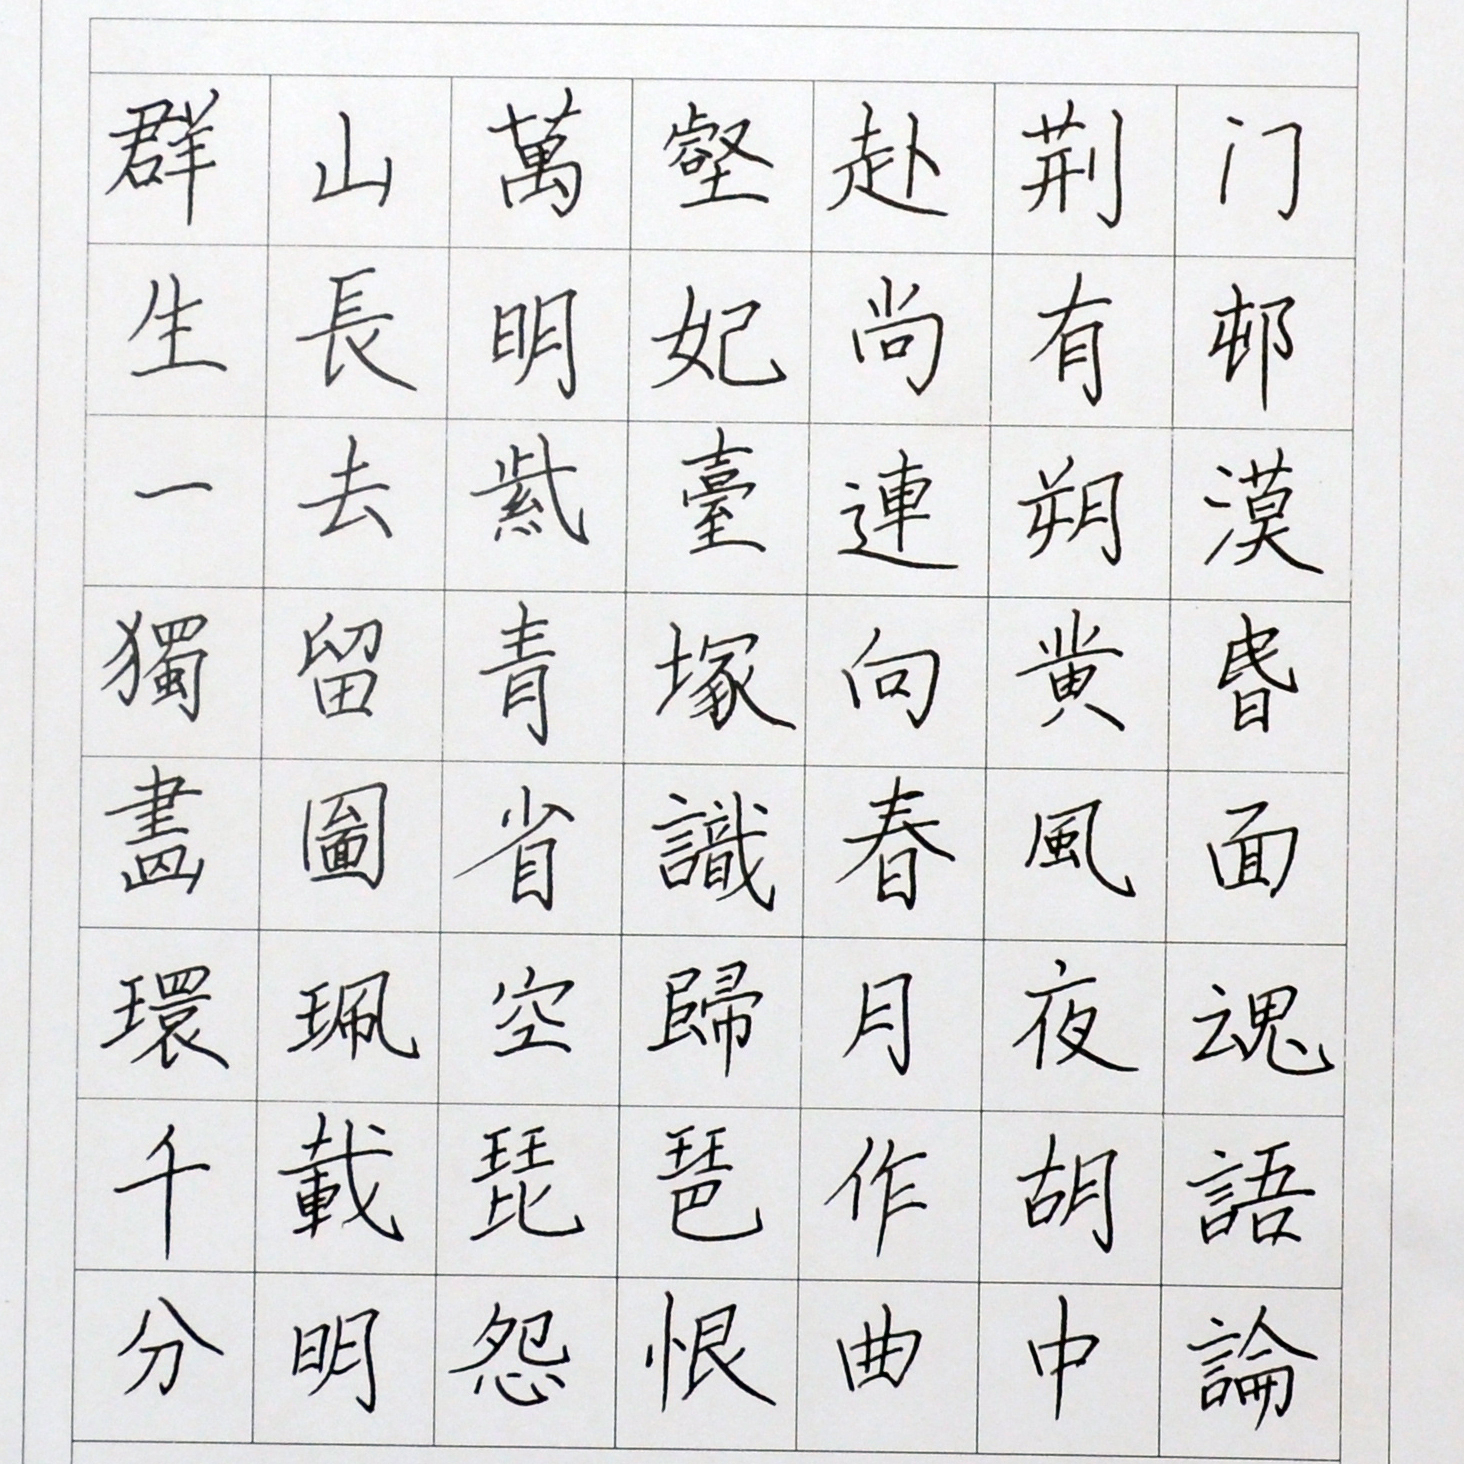 群山萬壑赴荆门
生長明妃尚有邨
一去紫臺連朔漠
獨留青塚向黄昬
畫圖省識春風面
環珮空歸月夜魂
千載琵琶作胡語
分明怨恨曲中論